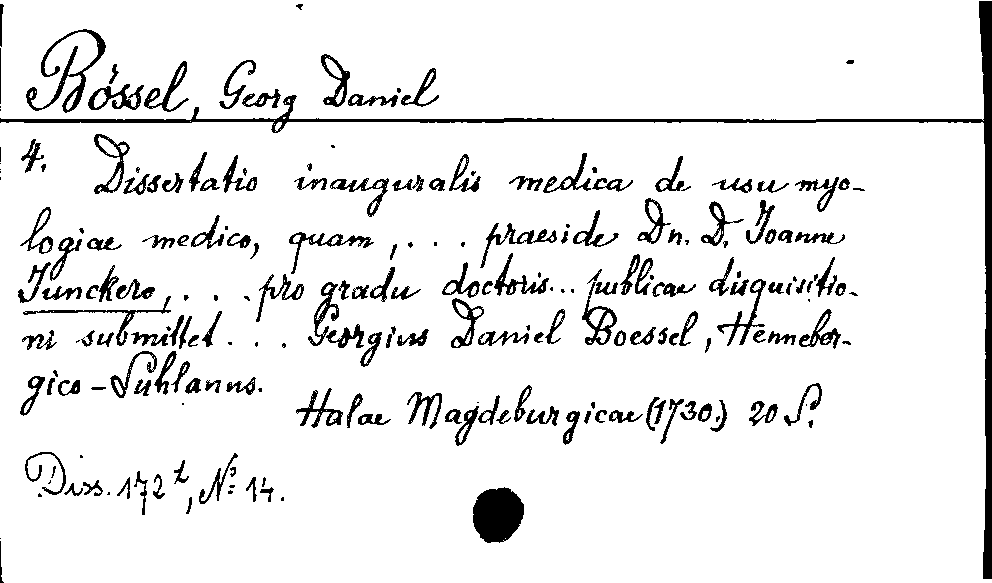 Bössel, Georg Daniel
4. Dissertatio inauguralis medica de usu myo-
logiae medico, quam, . . . praeside Dn. D. Joanne
Junckero, . . . pro gradu doctoris... publicae disquisitio-
ni submittet . . . Georgius Daniel Boessel, Henneber-
gico-Suhlanus.
Halae Magdeburgicae (1730.) 20 S.
Diss. 172 t, No 14.